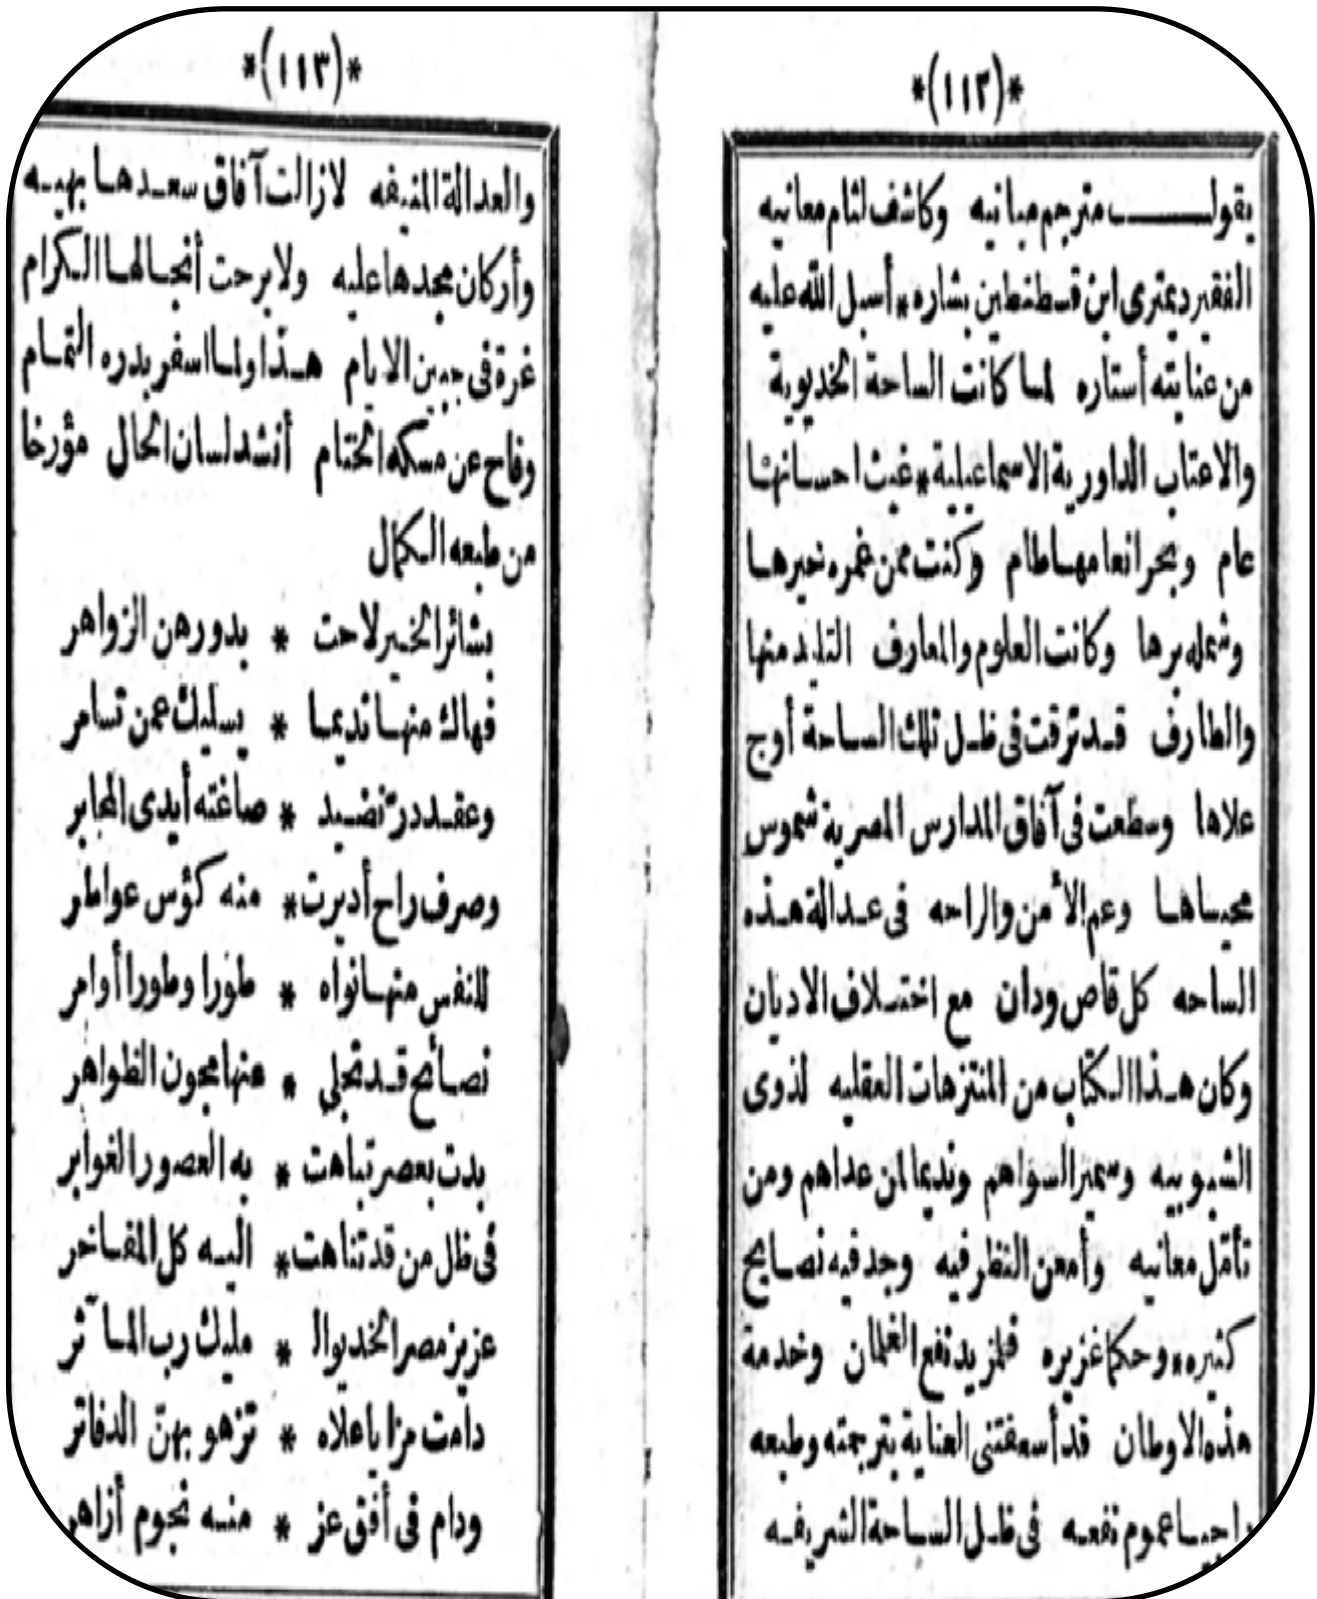 *(١١٢)*
يقول مترجم مبانيه وكاشف لثام معانيه
الفقير ديمترى ابن قسطنطين بشاره * أسبل الله عليه
من عنايته أستاره لما كانت الساحة الخديوية
والاعتاب الداورية الاسماعيلية * غيث احسانها
عام وبحر انعامها طام وكنت ممن غمره خيرها
وشمله برها وكانت العلوم والمعارف التليد منها
والطارف قد ترقت فى ظل تلك الساحة أوج
علاها وسطعت فى آفاق المدارس المصرية شموس
محياها وعم الأمن والراحه فى عدالة هذه
الساحه كل قاص ودان مع اختلاف الاديان
وكان هذا الكتاب من المنتزهات العقليه لذوى
الشبوبيه وسميرا لسواهم ونديما لمن عداهم ومن
تأمّل معانيه وأمعن النظر فيه وجد فيه نصايح
كثيره * وحكما غزيره فلمزيد نفع الغلمان وخدمة
هذه الاوطان قد أسعفتنى العناية بترجمته وطبعه
راجيا عموم نفعه فى ظل الساحة الشريفه
*(١١٣)*
والعدالة المنيفه لازالت آفاق سعدها بهيه
وأركان مجدها عليه ولا برحت أنجالها الكرام
غرة فى جبين الايام هذا ولما اسفر بدره التمام
وفاح عن مسكه الختام أنشد لسان الحال مؤرخا
من طبعه الكمال
بشائر الخير لاحت * بدورهن الزواهر
فهاك منها نديما * يسليك عمن تسامر
وعقد درّ نضيد * صاغته أيدى المحابر
وصرف راح أديرت * منه كؤس عواطر
للنفس منها نواه * طورا وطورا أوامر
نصائح قد تجلى * عنها مجون الظواهر
بدت بعصر تباهت * به العصور الغوابر
فى ظل من قد تناهت * اليه كل المفاخر
عزيز مصر الخديو ال * مليك رب المآثر
دامت مزاياعلاه * تزهو بهنّ الدفاتر
ودام فى أفق عز * منه نجوم أزاهر